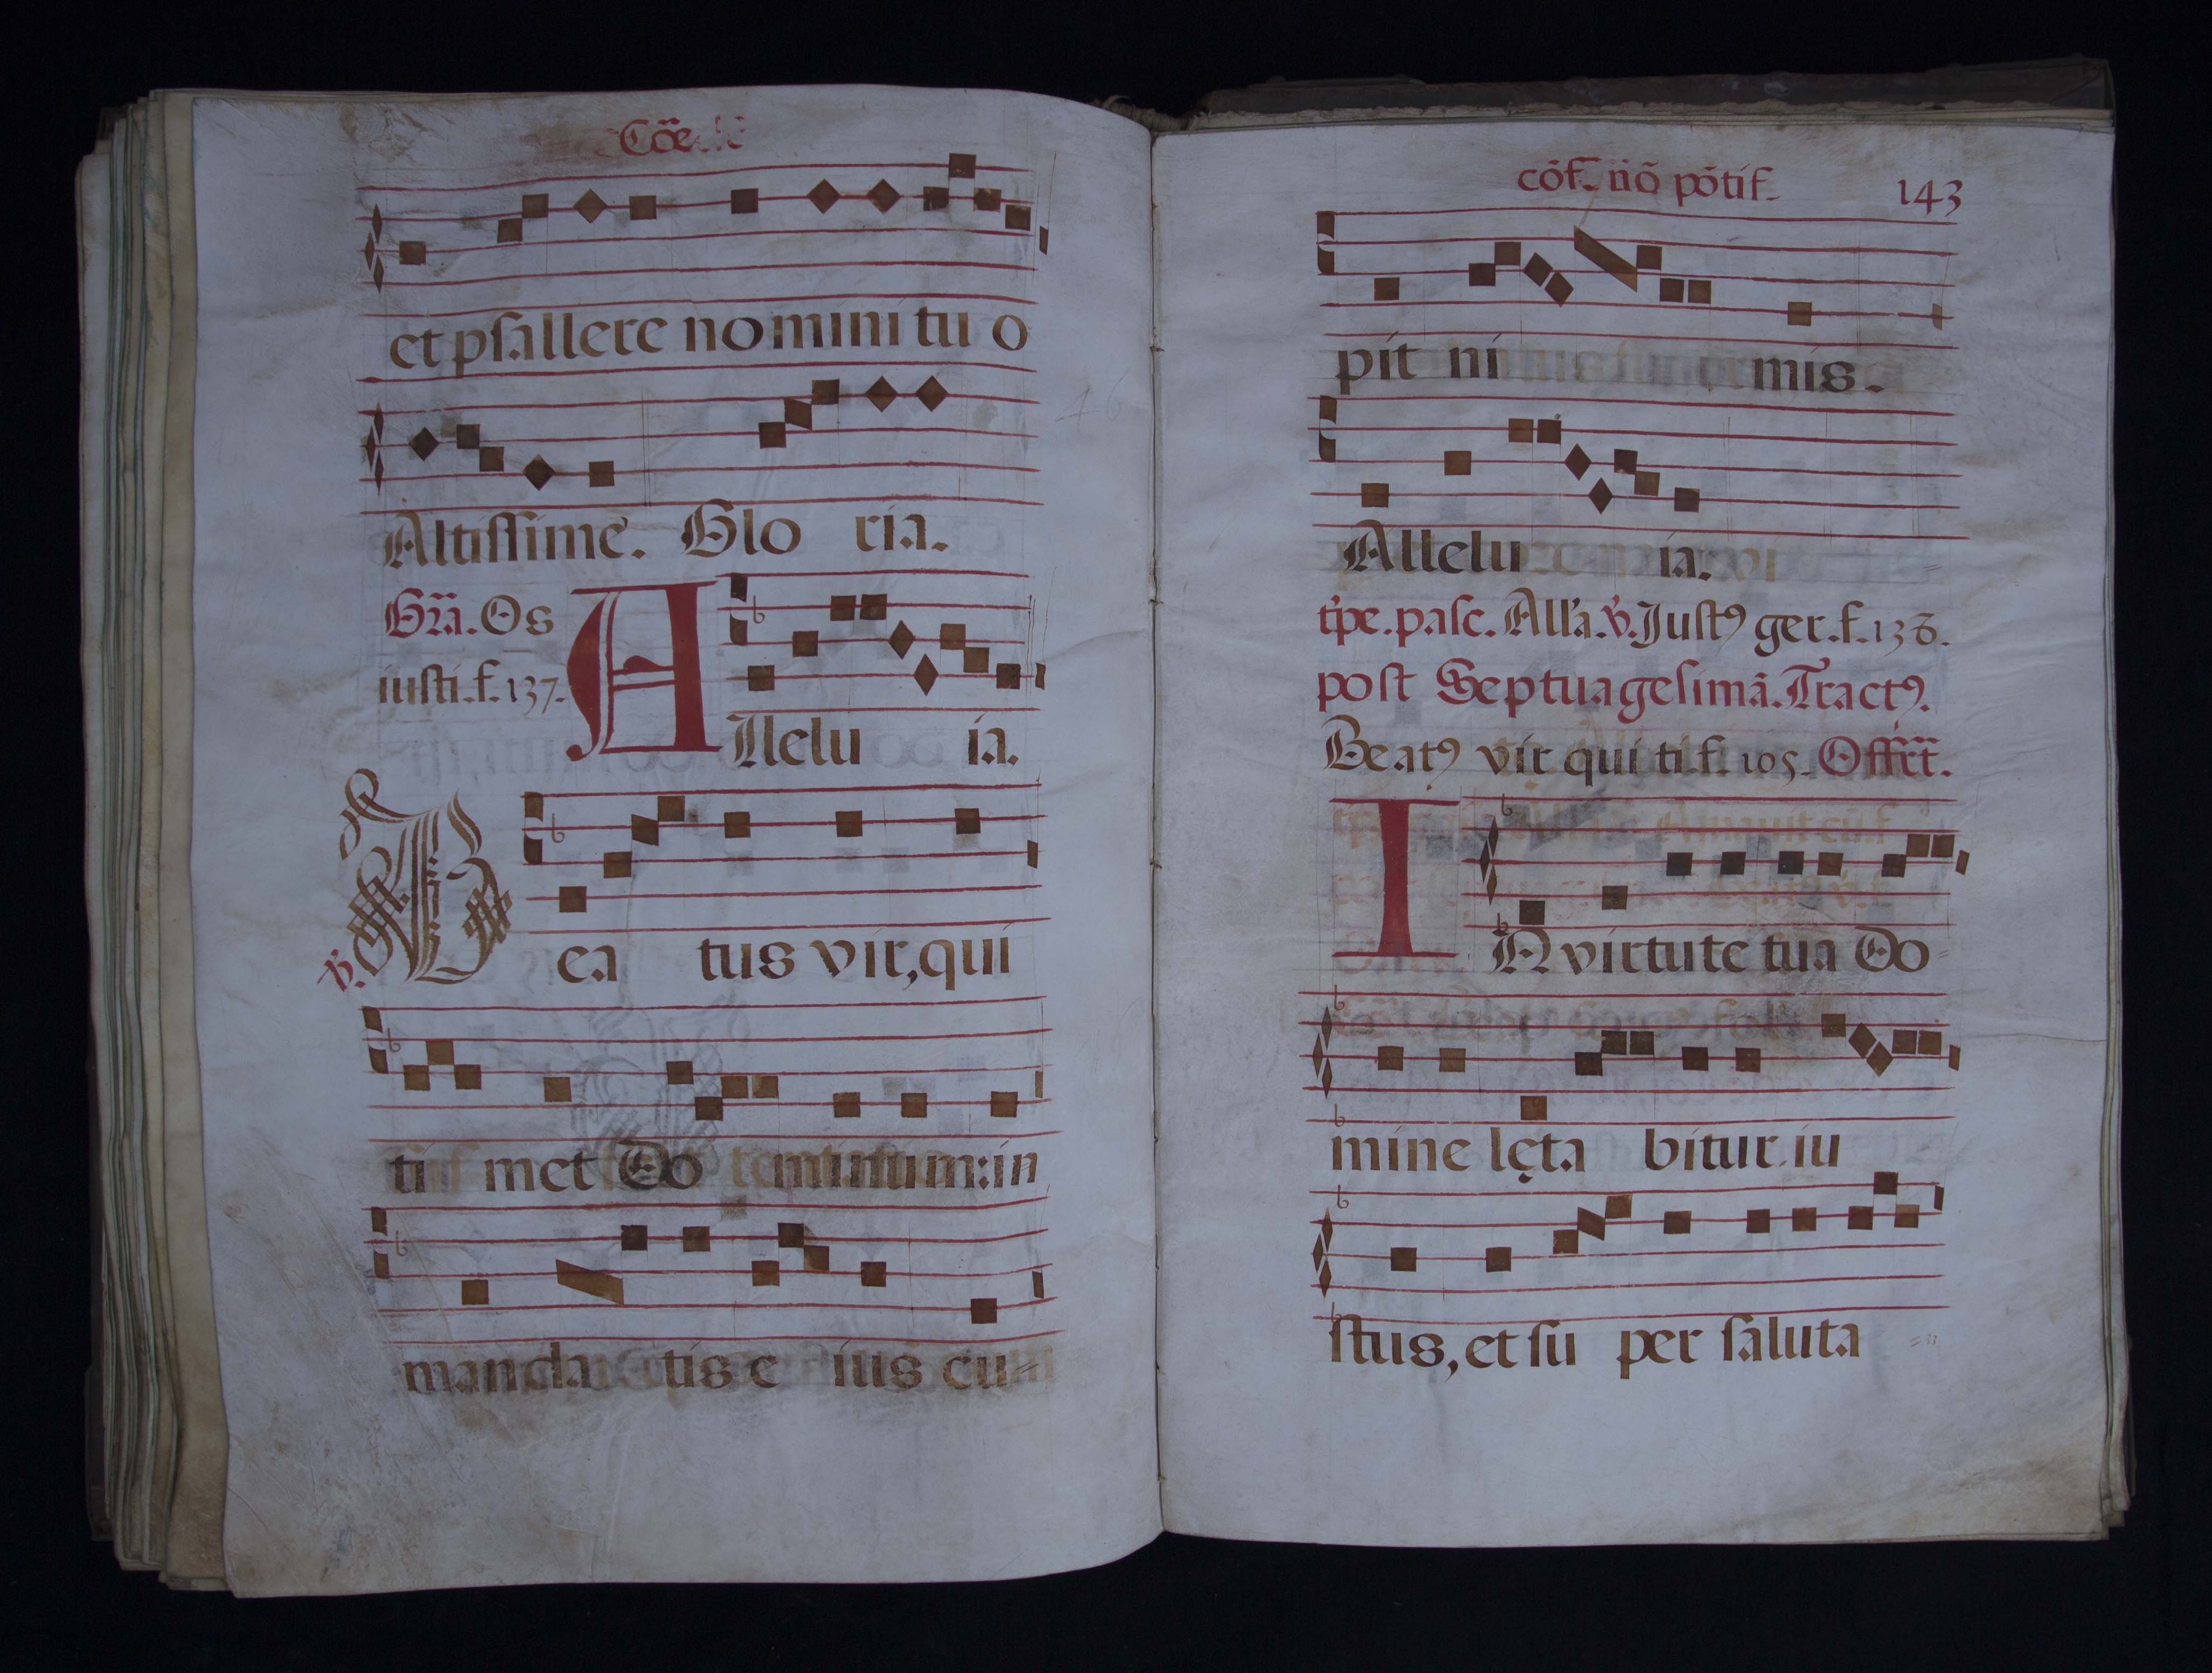 Cōe
et psallere nomini tu o
Altissime. Glo ria.
Gra. Os
iusti. f. 137.
A llelu ia.
℣. B ea tus vir, qui
ti met Do minum: in
manda tis e ius cu-
cōf. nō pōtif. 143
pit ni mis.
Allelu ia.
tpe. pasc. All'a. ℣. Justꝰ ger. f. 138.
post Septuagesimā. Tractꝰ.
Beatꝰ vir qui ti. f. 105. Offrt.
I N virtute tua Do-
mine lęta bitur iu
stus, et su per saluta =